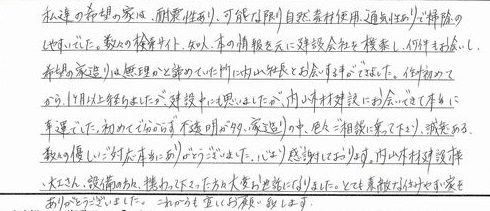 私達の希望の家は、耐震性あり、可能な限り自然素材使用、通気性ありで掃除の
しやすいでした。数々の検索サイト、知人、本の情報を元に建設会社を検索し、何件もお会いし、
希望の家造りは無理かと諦めていた所に内山社長とお会いする事ができました。住み初めて
から、1ヶ月以上経ちましたが、建設中にも思いましたが、内山木材建設にお会いできて本当に
幸運でした。初めてで分からず不透明が多い家造りの中、色々ご相談に乗って下さり、誠意ある
数々の優しいご対応本当にありがとうございました。心より感謝しております。内山木材建設様
、大工さん、設備の方々、携わって下さった方々大変お世話になりました。とても素敵な住みやすい家を
ありがとうございました。これからも宜しくお願い致します。